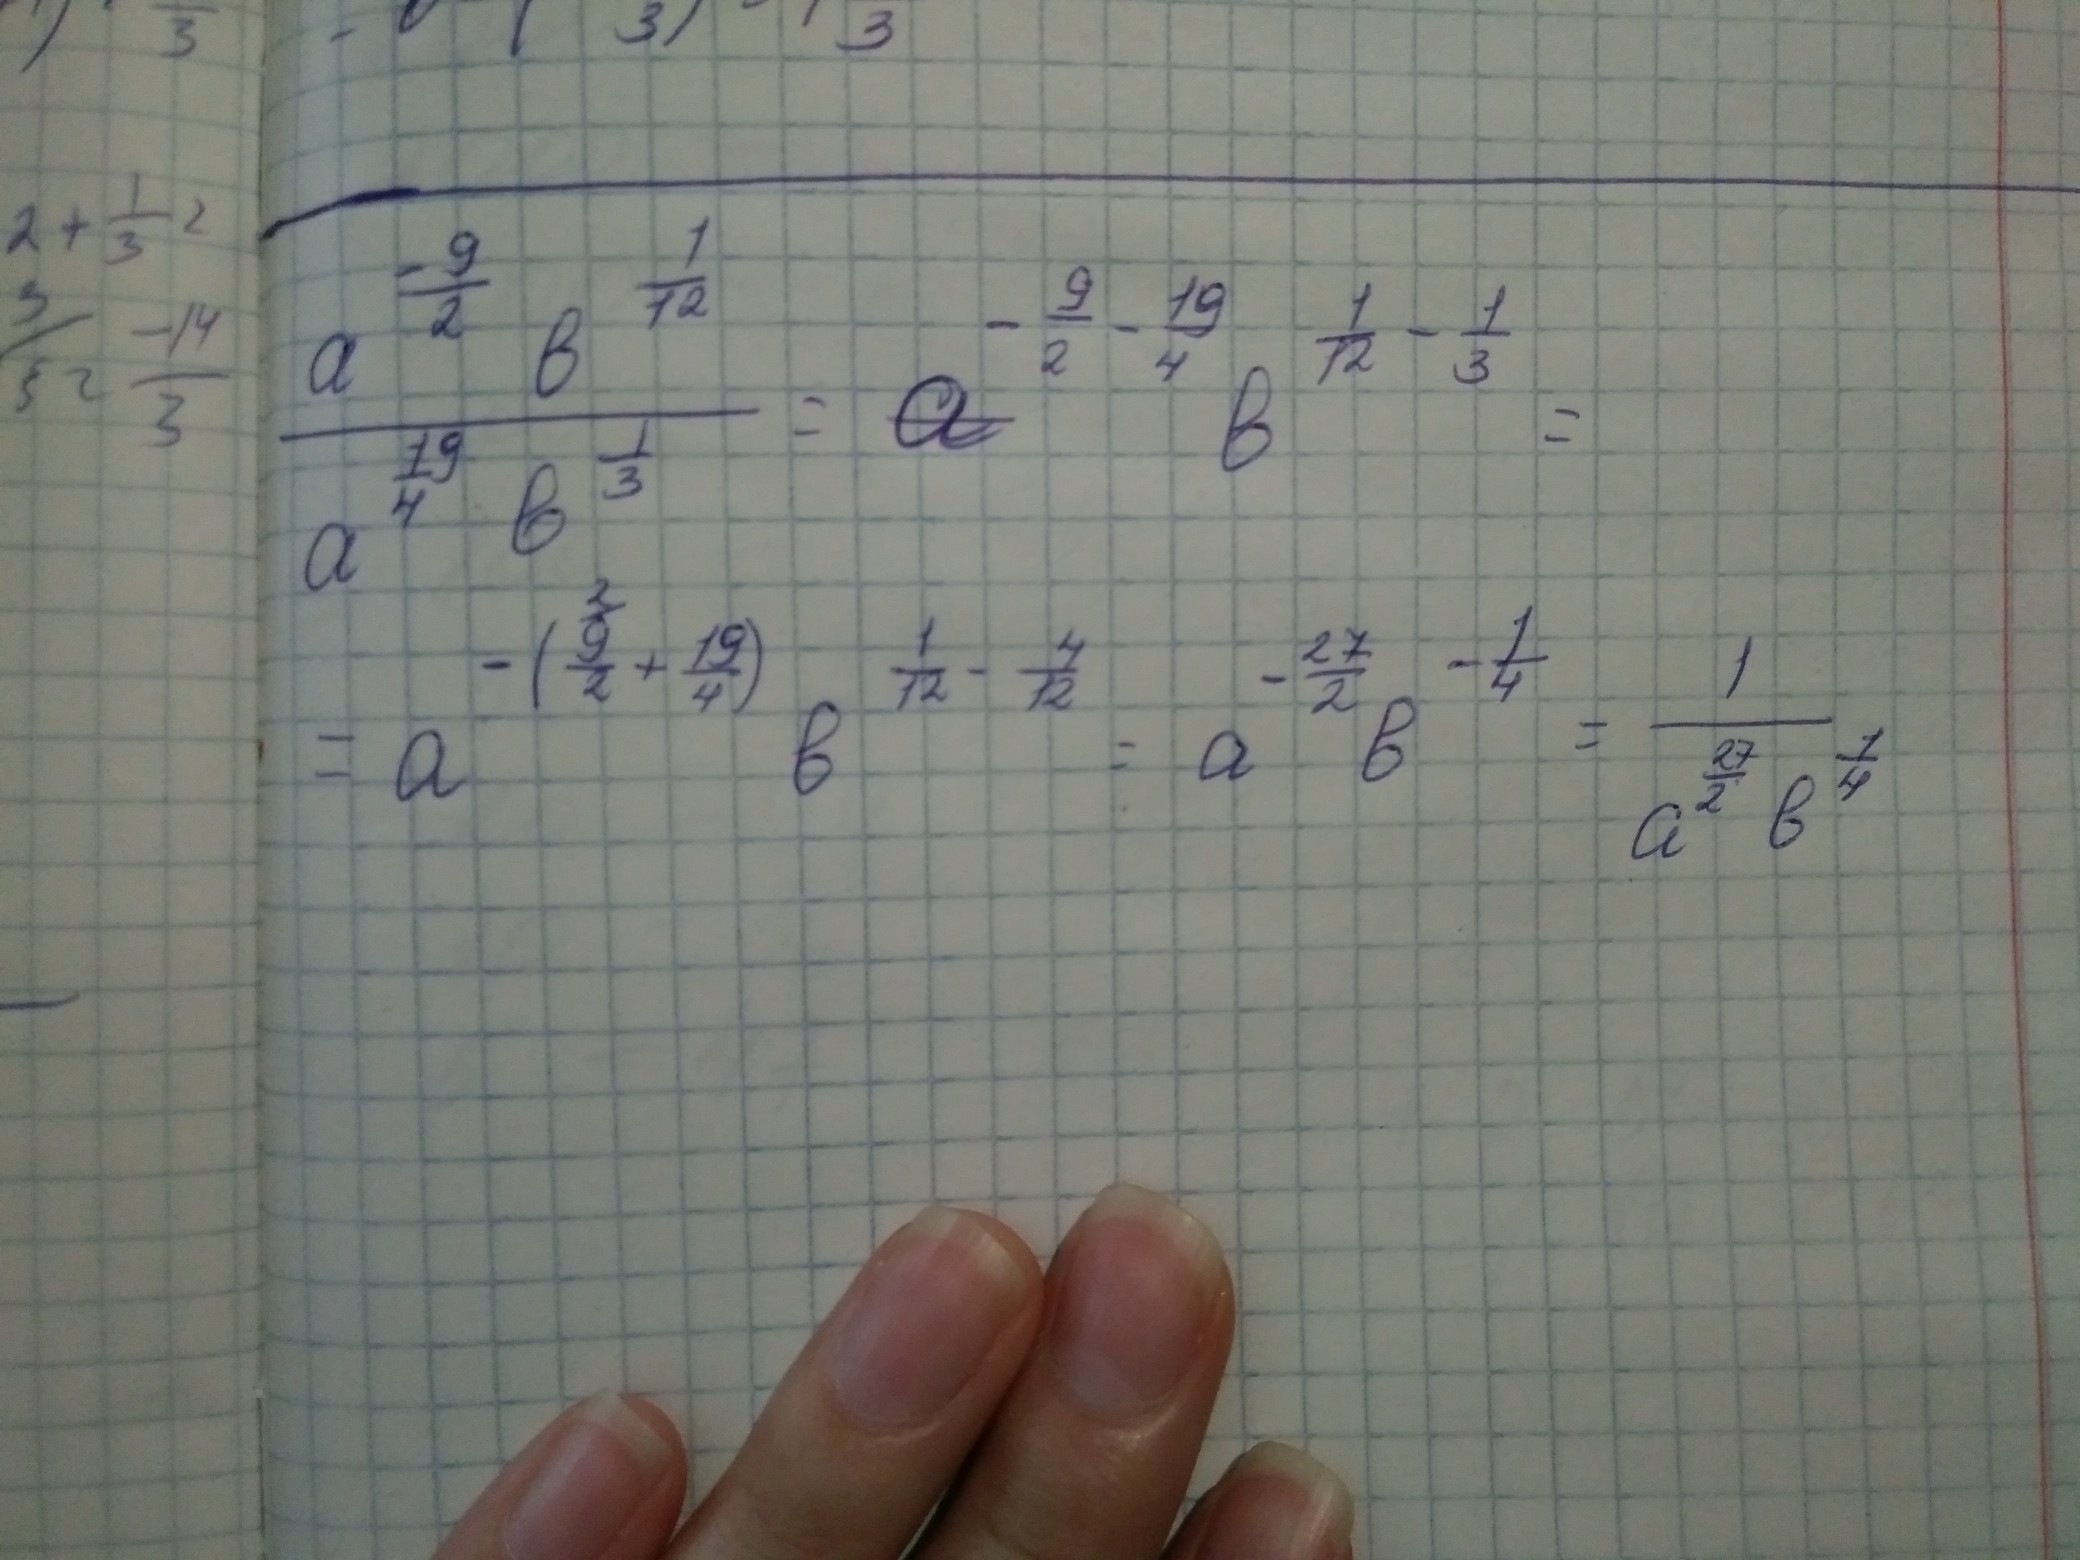 2 + 1/3 =
-14/3
a^(-9/2) в^(1/12) / a^(19/4) в^(1/3) = a^(-9/2 - 19/4) в^(1/12 - 1/3) =
= a^(-(9/2 + 19/4)) в^(1/12 - 4/12) = a^(-27/2) в^(-1/4) = 1 / a^(27/2) в^(1/4)